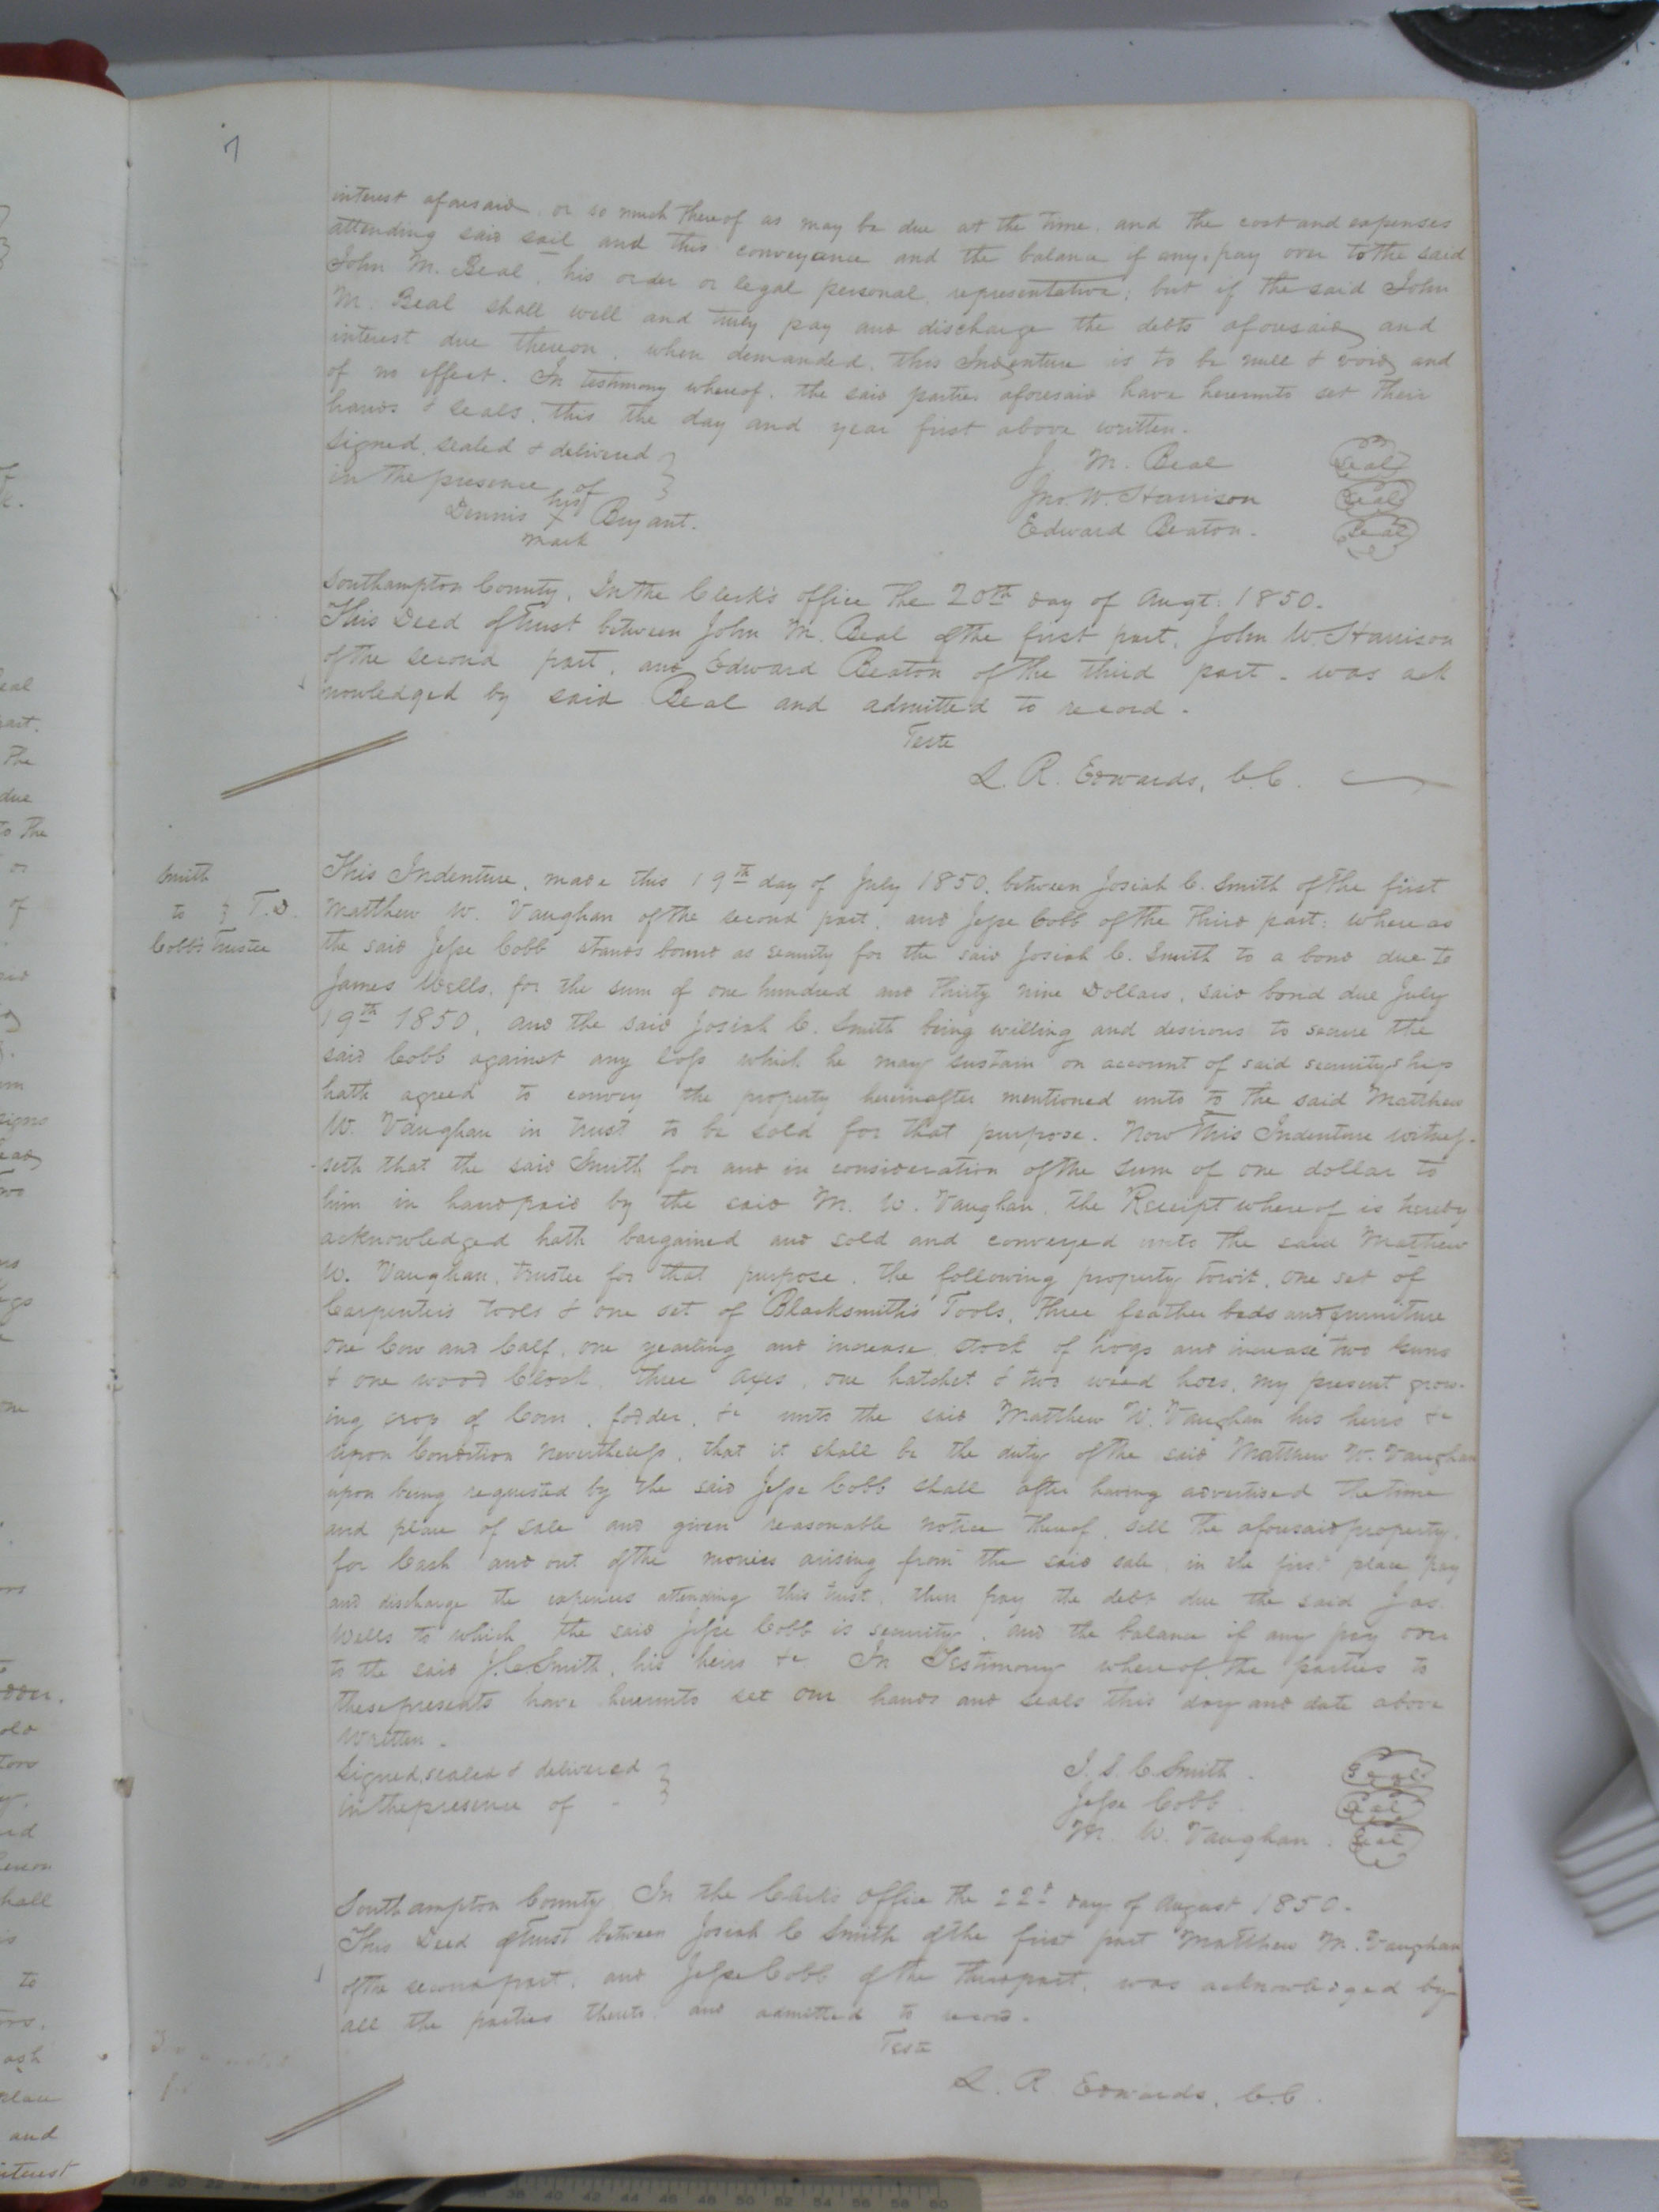 7
interest aforesaid, or so much thereof as may be due at the time, and the cost and expenses
attending said sail and this conveyance and the balance if any, pay over to the said
John M. Beal, his order or legal personal representative; but if the said John
M. Beal shall well and truly pay and discharge the debts aforesaid and
interest due thereon, when demanded, this Indenture is to be null & void and
of no effect. In testimony whereof, the said parties aforesaid have hereunto set their
hands & seals, this the day and year first above written.
signed, sealed & delivered
in the presence of
J. M. Beal Seal
Jno. W. Harrison Seal
Edward Beaton. Seal
his
Dennis X Bryant.
mark
Southampton County, In the Clerk's office the 20th day of Augt: 1850.
This Deed of Trust between John M. Beal of the first part, John W. Harrison
of the second part, and Edward Beaton of the third part, was ack
nowledged by said Beal and admitted to record.
Teste
L. R. Edwards, C.C.
Smith
to } T.D.
Cobb's Trustee
This Indenture, made this 19th day of July 1850, between Josiah C. Smith of the first
Matthew W. Vaughan of the second part, and Jesse Cobb of the third part: where as
the said Jesse Cobb stands bound as security for the said Josiah C. Smith to a bond due to
James Wells, for the sum of one hundred and thirty nine Dollars, said bond due July
19th 1850, and the said Josiah C. Smith being willing and desirous to secure the
said Cobb against any loss which he may sustain on account of said securityship
hath agreed to convey the property hereinafter mentioned unto to the said Matthew
W. Vaughan in trust to be sold for that purpose. Now This Indenture witnes-
seth that the said Smith for and in consideration of the sum of one dollar to
him in hand paid by the said M. W. Vaughan, the Receipt whereof is hereby
acknowledged hath bargained and sold and conveyed unto the said Matthew
W. Vaughan, trustee for that purpose, the following property towit, one set of
Carpenter's tools & one set of Blacksmith's Tools, three feather beds and furniture
one Cow and Calf, one yearling and increase, stock of hogs and increase two guns
& one wood Clock, three axes, one hatchet & two weed hoes, my present grow-
ing crop of Corn, fodder, &c unto the said Matthew W. Vaughan his heirs &c
upon Condition nevertheless, that it shall be the duty of the said Matthew W. Vaughan
upon being requested by the said Jesse Cobb shall after having advertised the time
and place of sale and given reasonable notice thereof, sell the aforesaid property,
for Cash and out of the monies arising from the said sale, in the first place pay
and discharge the expences attending this trust, then pay the debt due the said Jas
Wells to which the said Jesse Cobb is security, and the balance if any pay over
to the said J. C. Smith, his heirs &c. In Testimony whereof, the parties to
these presents have hereunto set our hands and seals this day and date above
written.
Signed, sealed & delivered
in the presence of
J. S. C. Smith. Seal
Jesse Cobb Seal
M. W. Vaughan. Seal
Southampton County In the Clerk's office the 22d day of August 1850.
This Deed of Trust between Josiah C Smith of the first part Matthew W. Vaughan
of the second part, and Jesse Cobb of the third part, was acknowledged by
all the parties thereto, and admitted to record.
Teste
L. R. Edwards, C.C.